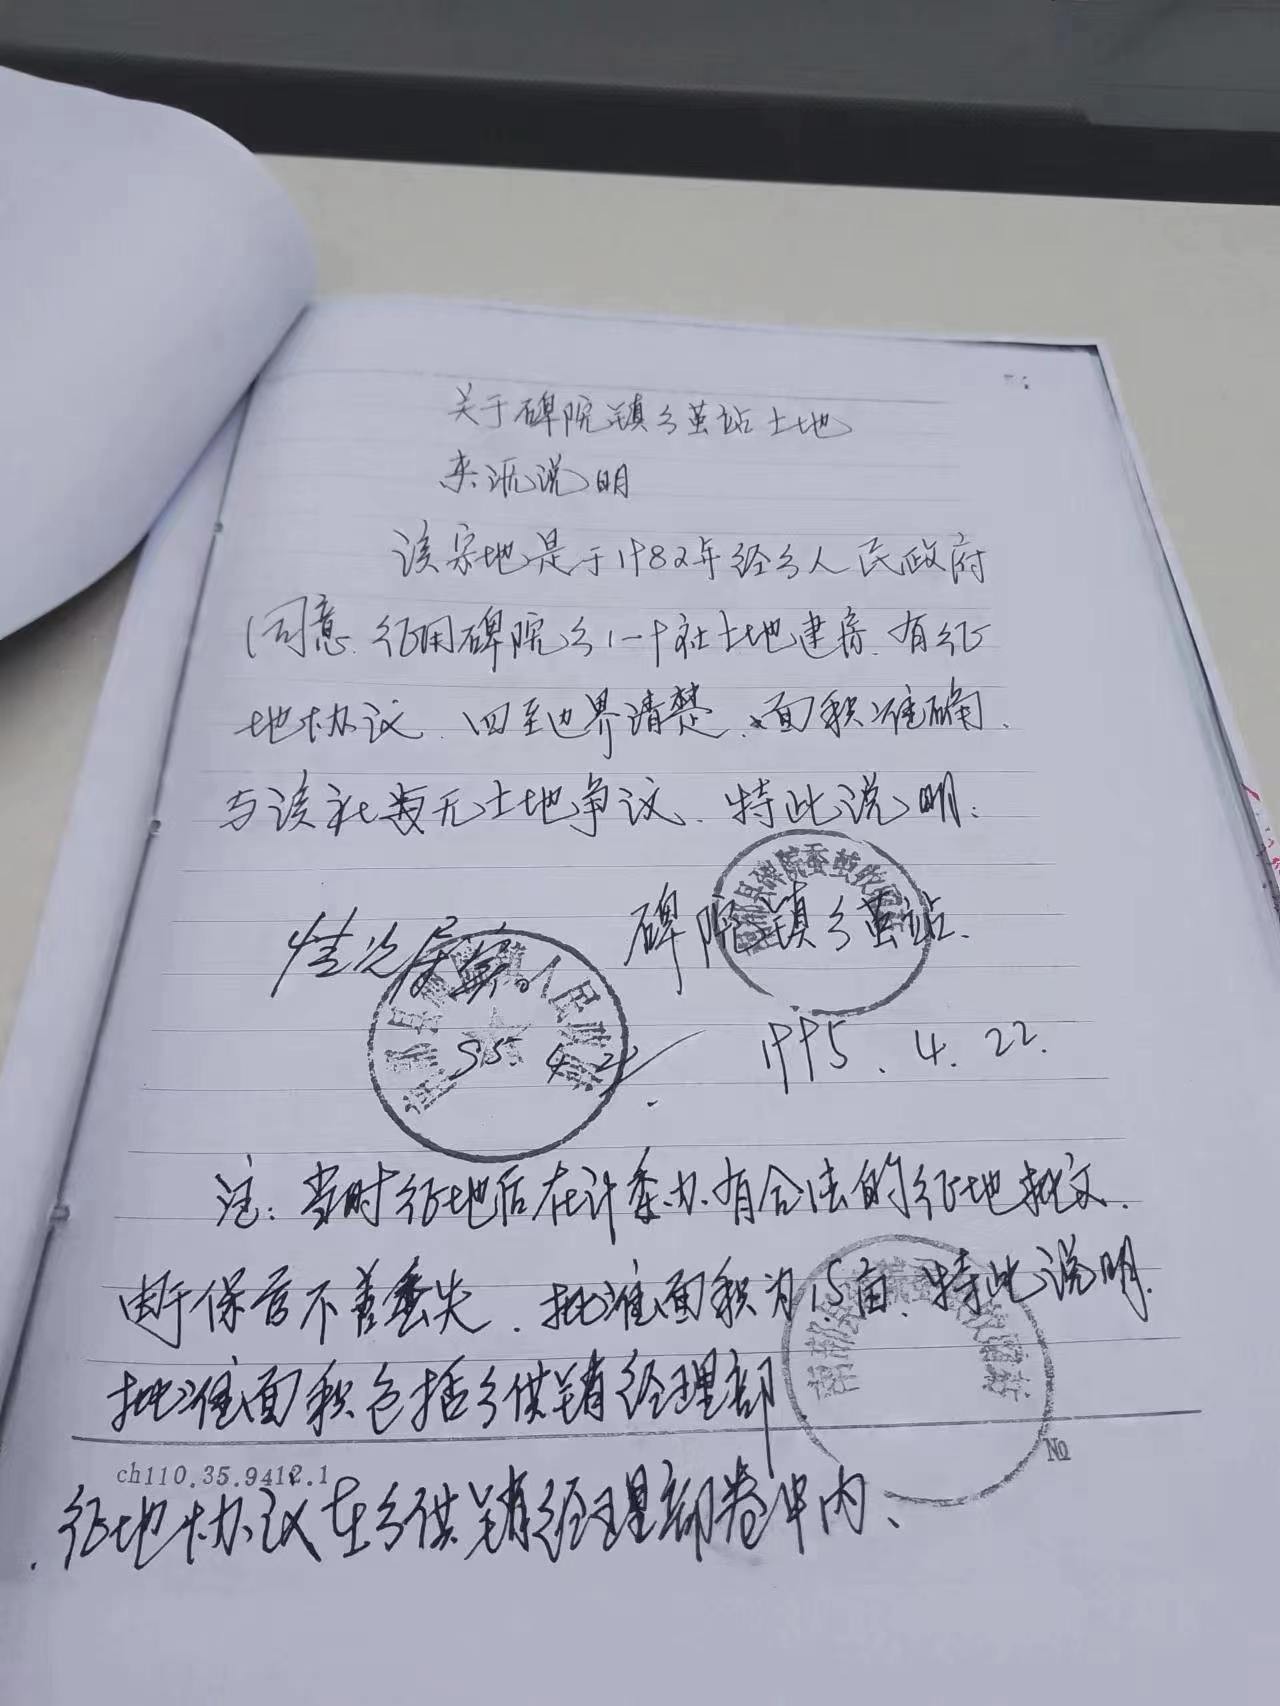 关于碑院镇乡茧站土地
来源说明
该宗地是于1982年经乡人民政府
同意.征用碑院乡一社土地建房.有征
地协议.四至边界清楚、面积准确.
与该社无土地争议.特此说明:
碑院镇乡茧站.
情况属实。
1995.4.22.
95.4.22
注:当时征地后在计委办有合法的征地批文.
由于保管不善丢失.批准面积为1.5亩、特此说明.
批准面积包括乡供销经理部
ch110.35.9412.1
No
征地协议在乡供销经理部卷中内、